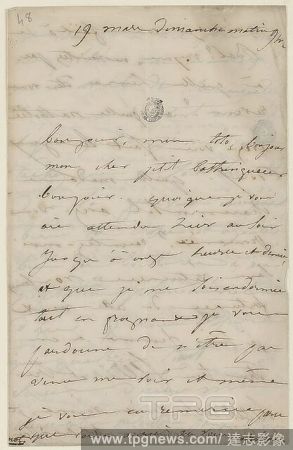 48
19 mars dimanche matin 9h
bonjour, mon toto, bonjour
mon cher petit
bonjour. Quoique je vous
aie attendu hier au soir
jusqu'à onze heures et demie,
et que je me sois endormie
tout en grognant je vous
pardonne de n'être pas
venu me voir et même
je vous en remercie parce
que
TPG
www.tpgnews.com / 達志影像